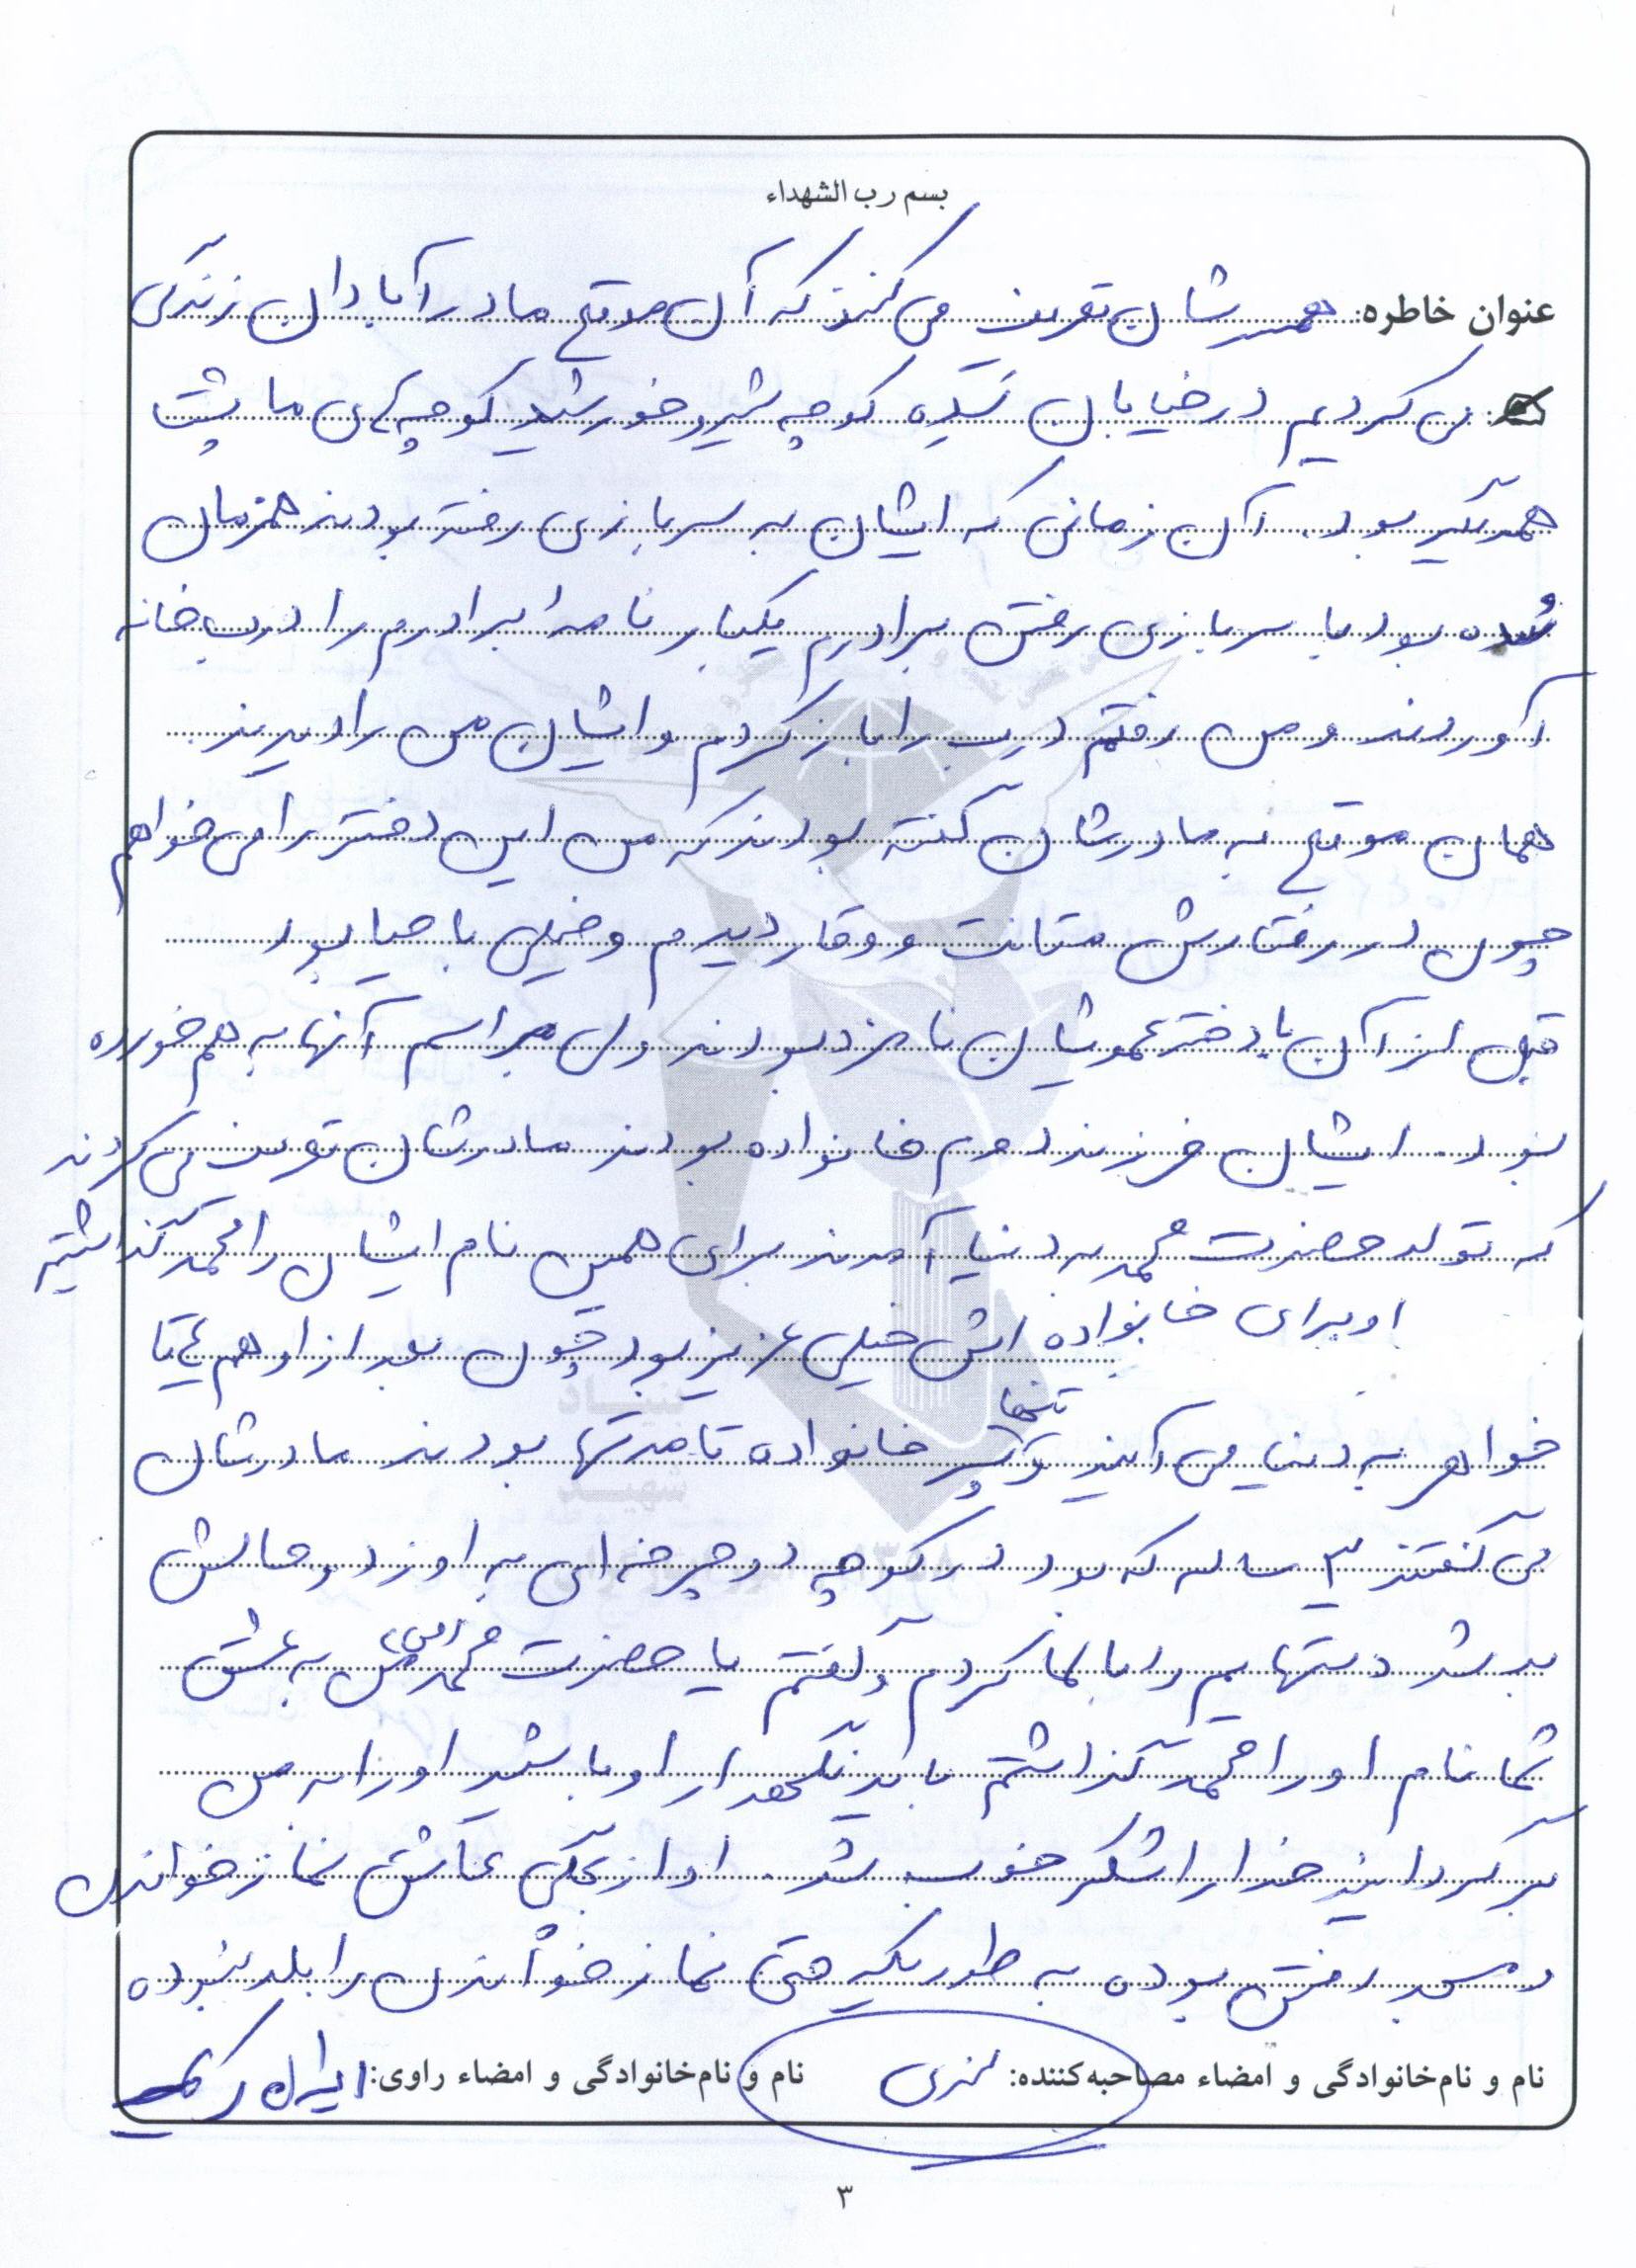 بسم رب الشهداء
عنوان خاطره: همسرشان تعریف می کنند که آن موقع ما در آبادان زندگی
می کردیم در خیابان کوچه شیر و خورشید کوچه ی ما پشت
همدیگر بود. آن زمانی که ایشان به سربازی رفته بودند همزمان
شده بود با سربازی رفتن برادرم یکبار نامه برادرم را درب خانه
آوردند و من رفتم درب را باز کردم و ایشان من را دیدند.
همان موقع به مادرشان گفته بودند که من این دختر را می خواهم
چون در رفتارش متانت و وقار دیدم و خیلی با حیا بود
قبل از آن با دختر عمویشان نامزد بودند ولی مراسم آنها به هم خورده
بود. ایشان فرزند دوم خانواده بودند مادرشان تعریف می کردند
که تولد حضرت محمد به دنیا آمدند برای همین نام ایشان را محمد گذاشتیم
او برای خانواده اش خیلی عزیز بود چون بعد از او هم ۴ تا
خواهر به دنیا می آیند و تنها پسر خانواده تا مدتها بودند مادرشان
می گفتند ۳ ساله که بود در کوچه دوچرخه ای به او زد و حالش
بد شد دستهایم را بالا کردم و گفتم یا حضرت محمد امین به عشق
شما نام او را محمد گذاشتم باید نگهدار او باشید او را به من
برگردانید خدا را شکر خوب شد. او از بچگی عاشق نماز خواندن
و مسجد رفتن بوده به طوریکه حتی نماز خواندن را بلد نبوده
نام و نام‌خانوادگی و امضاء مصاحبه‌کننده: نام و نام‌خانوادگی و امضاء راوی: ایران
۳
بنیاد
شهید